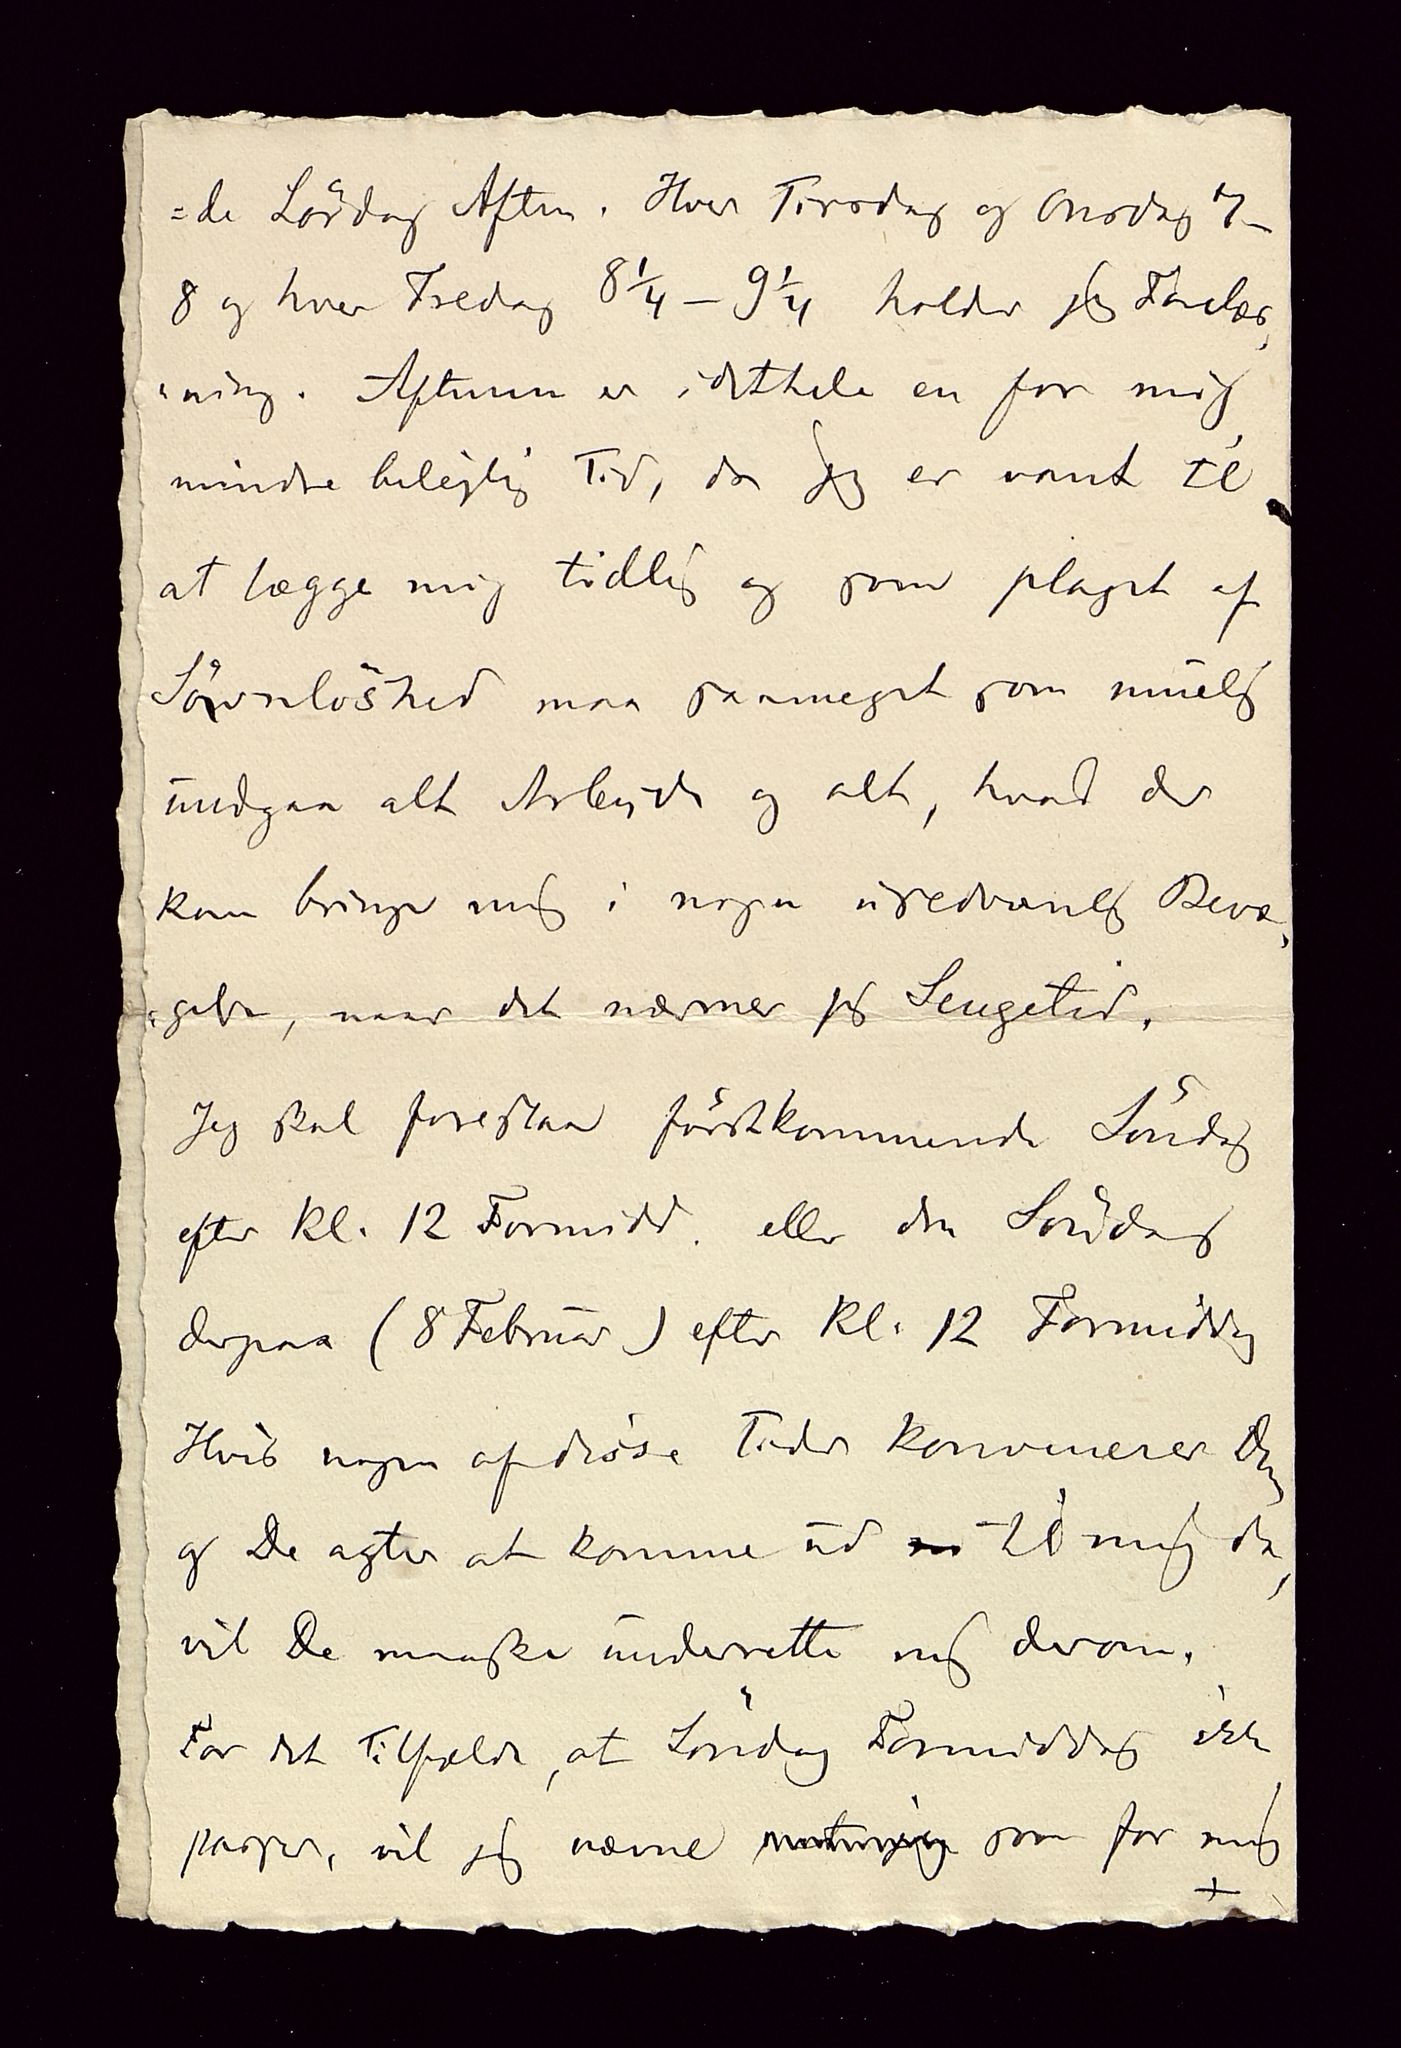 =de Lördag Aften. Hver Tirsdag og Onsdag 7–
8 og hver Fredag 8 1/4 – 9 1/4 holder jeg Forelæs,
,ning. Aftenen er idethele en for mig
mindre belejlig Tid, da jeg er vant til
at lægge mig tidlig og som plaget af
Sövnlöshed maa saameget som muelig
undgaa alt Arbejde og alt, hvad der
kan bringe mig i nogen usedvanlig Bevæ,
,gelse, naar det nærmer sig Sengetid.
Jeg skal foreslaa förstkommende Söndag
efter Kl. 12 Formidd. eller den Söndag
derpaa (8 Februar) efter Kl. 12 Formiddag
Hvis nogen af disse Tider konvenerer Dem
og De agter at komme ud til mig da,
vil De maaske underrette mig derom.
For det Tilfælde, at Söndag Formiddag ikke
passer, vil jeg nævne som for mig
+